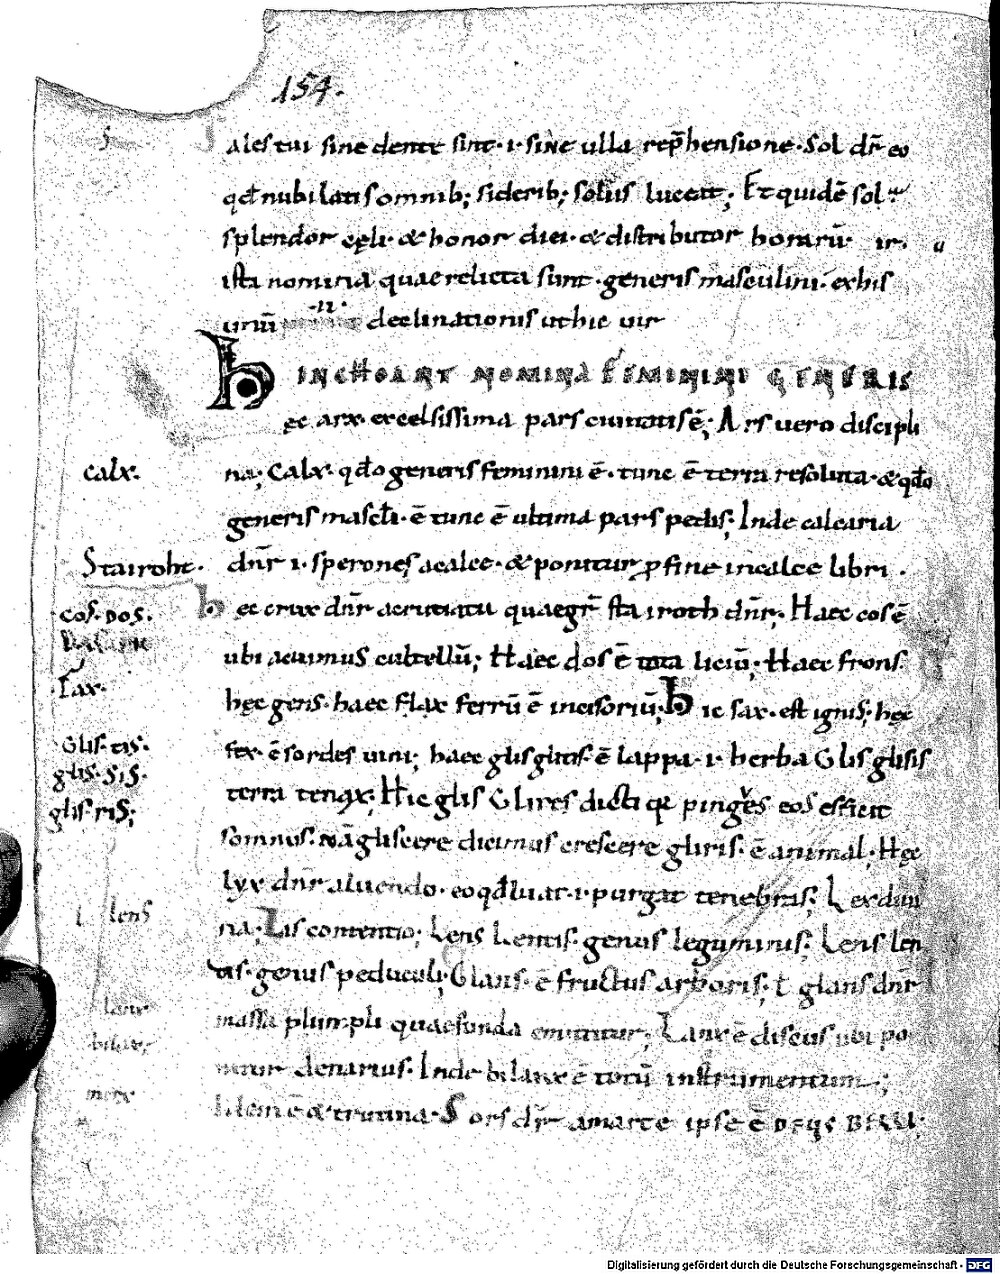 154.
ales tui sine dente sint ·i· sine ulla rep̄hensione· Sol dr̄ eo
qd̄ nubilatis omnib; siderib; solus luceat; Et quidē sol
splendor cęli· & honor diei· & distributor horarū· ir.
ista nomina quae relicta sunt· generis masculini· ex his
unū declinationis ut hic uir
INCHOANT NOMINA FEMININI GENERIS
Hec arx excelsissima pars ciuitatis ē; Ars uero discipli
calx.
na; Calx· qd̄o generis feminini ē· tunc ē terra resoluta· & qd̄o
generis mascl̄i· ē tunc ē ultima pars pedis; Inde calcaria
Stairoht.
dn̄r ·i· sperones a calce· & ponitur ꝓ fine in calce libri .
cos. dos.
Hec crux dn̄r a cruciatu quae gr̄ staıroth dn̄r; Haec cos ē
ubi acuimus cultellū; Haec dos ē tota liciū; Haec frons
fax.
hęc gens· haec flax ferrū ē incisoriū; Hic fax· est ignis; hęc
Glis. tis.
fex· ē sordes uini; haec glis glitis· ē lappa ·i· herba Glis glisis
glis. sis.
terra tenax; Hic glis Glires dicti qr pingues eos efficit
glis. ris;
somnus· nā gliscere dicimus crescere gliris· ē animal· Hęc
lyx dn̄r a luendo· eo qd̄ luat ·i· purgat tenebras; Lex diui
lens
na; Lis contentio; Lens Lentis· genus leguminis; Lens len
tis· genus peduculi; Glans· ē fructus arboris; ł glans dn̄r
lanx
massa plumpli quae funda emittitur; Lanx ē discus ubi po
bilanx;
nitur denarius· Inde bilanx ē totū instrumentum;
Idem ē & trutina· Sors dr̄ a marte ipse ē DEUS BELLI;
Digitalisierung gefördert durch die Deutsche Forschungsgemeinschaft - DFG